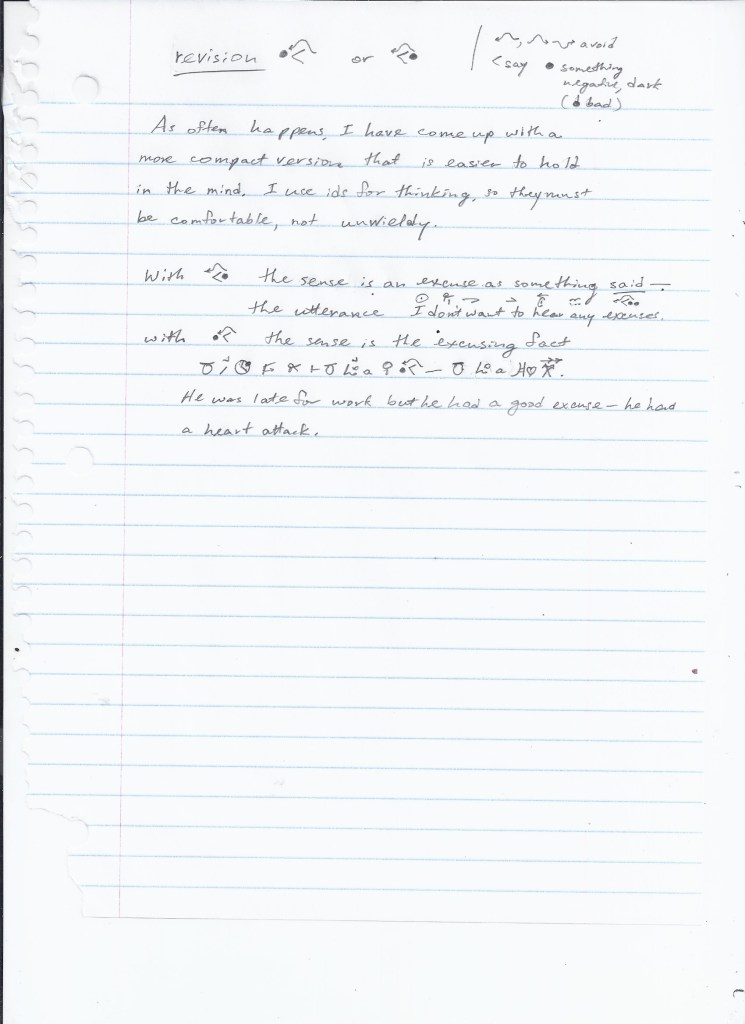 revision or
avoid
< say • something
negative, dark
( bad)
As often happens, I have come up with a
more compact version that is easier to hold
in the mind. I use ids for thinking, so they must
be comfortable, not unwieldy.
With the sense is an excuse as something said —
the utterance I don't want to hear any excuses.
with the sense is the excusing fact
He was late for work but he had a good excuse — he had
a heart attack.